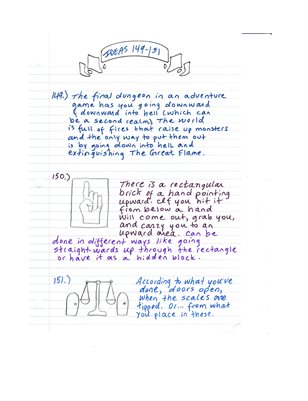 IDEAS 149-151
149.) The final dungeon in an adventure
game has you going downward
& downward into hell (which can
be a second realm). The world
is full of fires that raise up monsters
and the only way to put them out
is by going down into hell and
extinguishing The Great Flame.
150.) There is a rectangular
brick of a hand pointing
upward. If you hit it
from below a hand
will come out, grab you,
and carry you to an
upward area. Can be
done in different ways like going
straight upwards up through the rectangle
or have it as a hidden block.
151.) According to what you've
done, doors open,
when the scales are
tipped. Or... from what
you place in these.